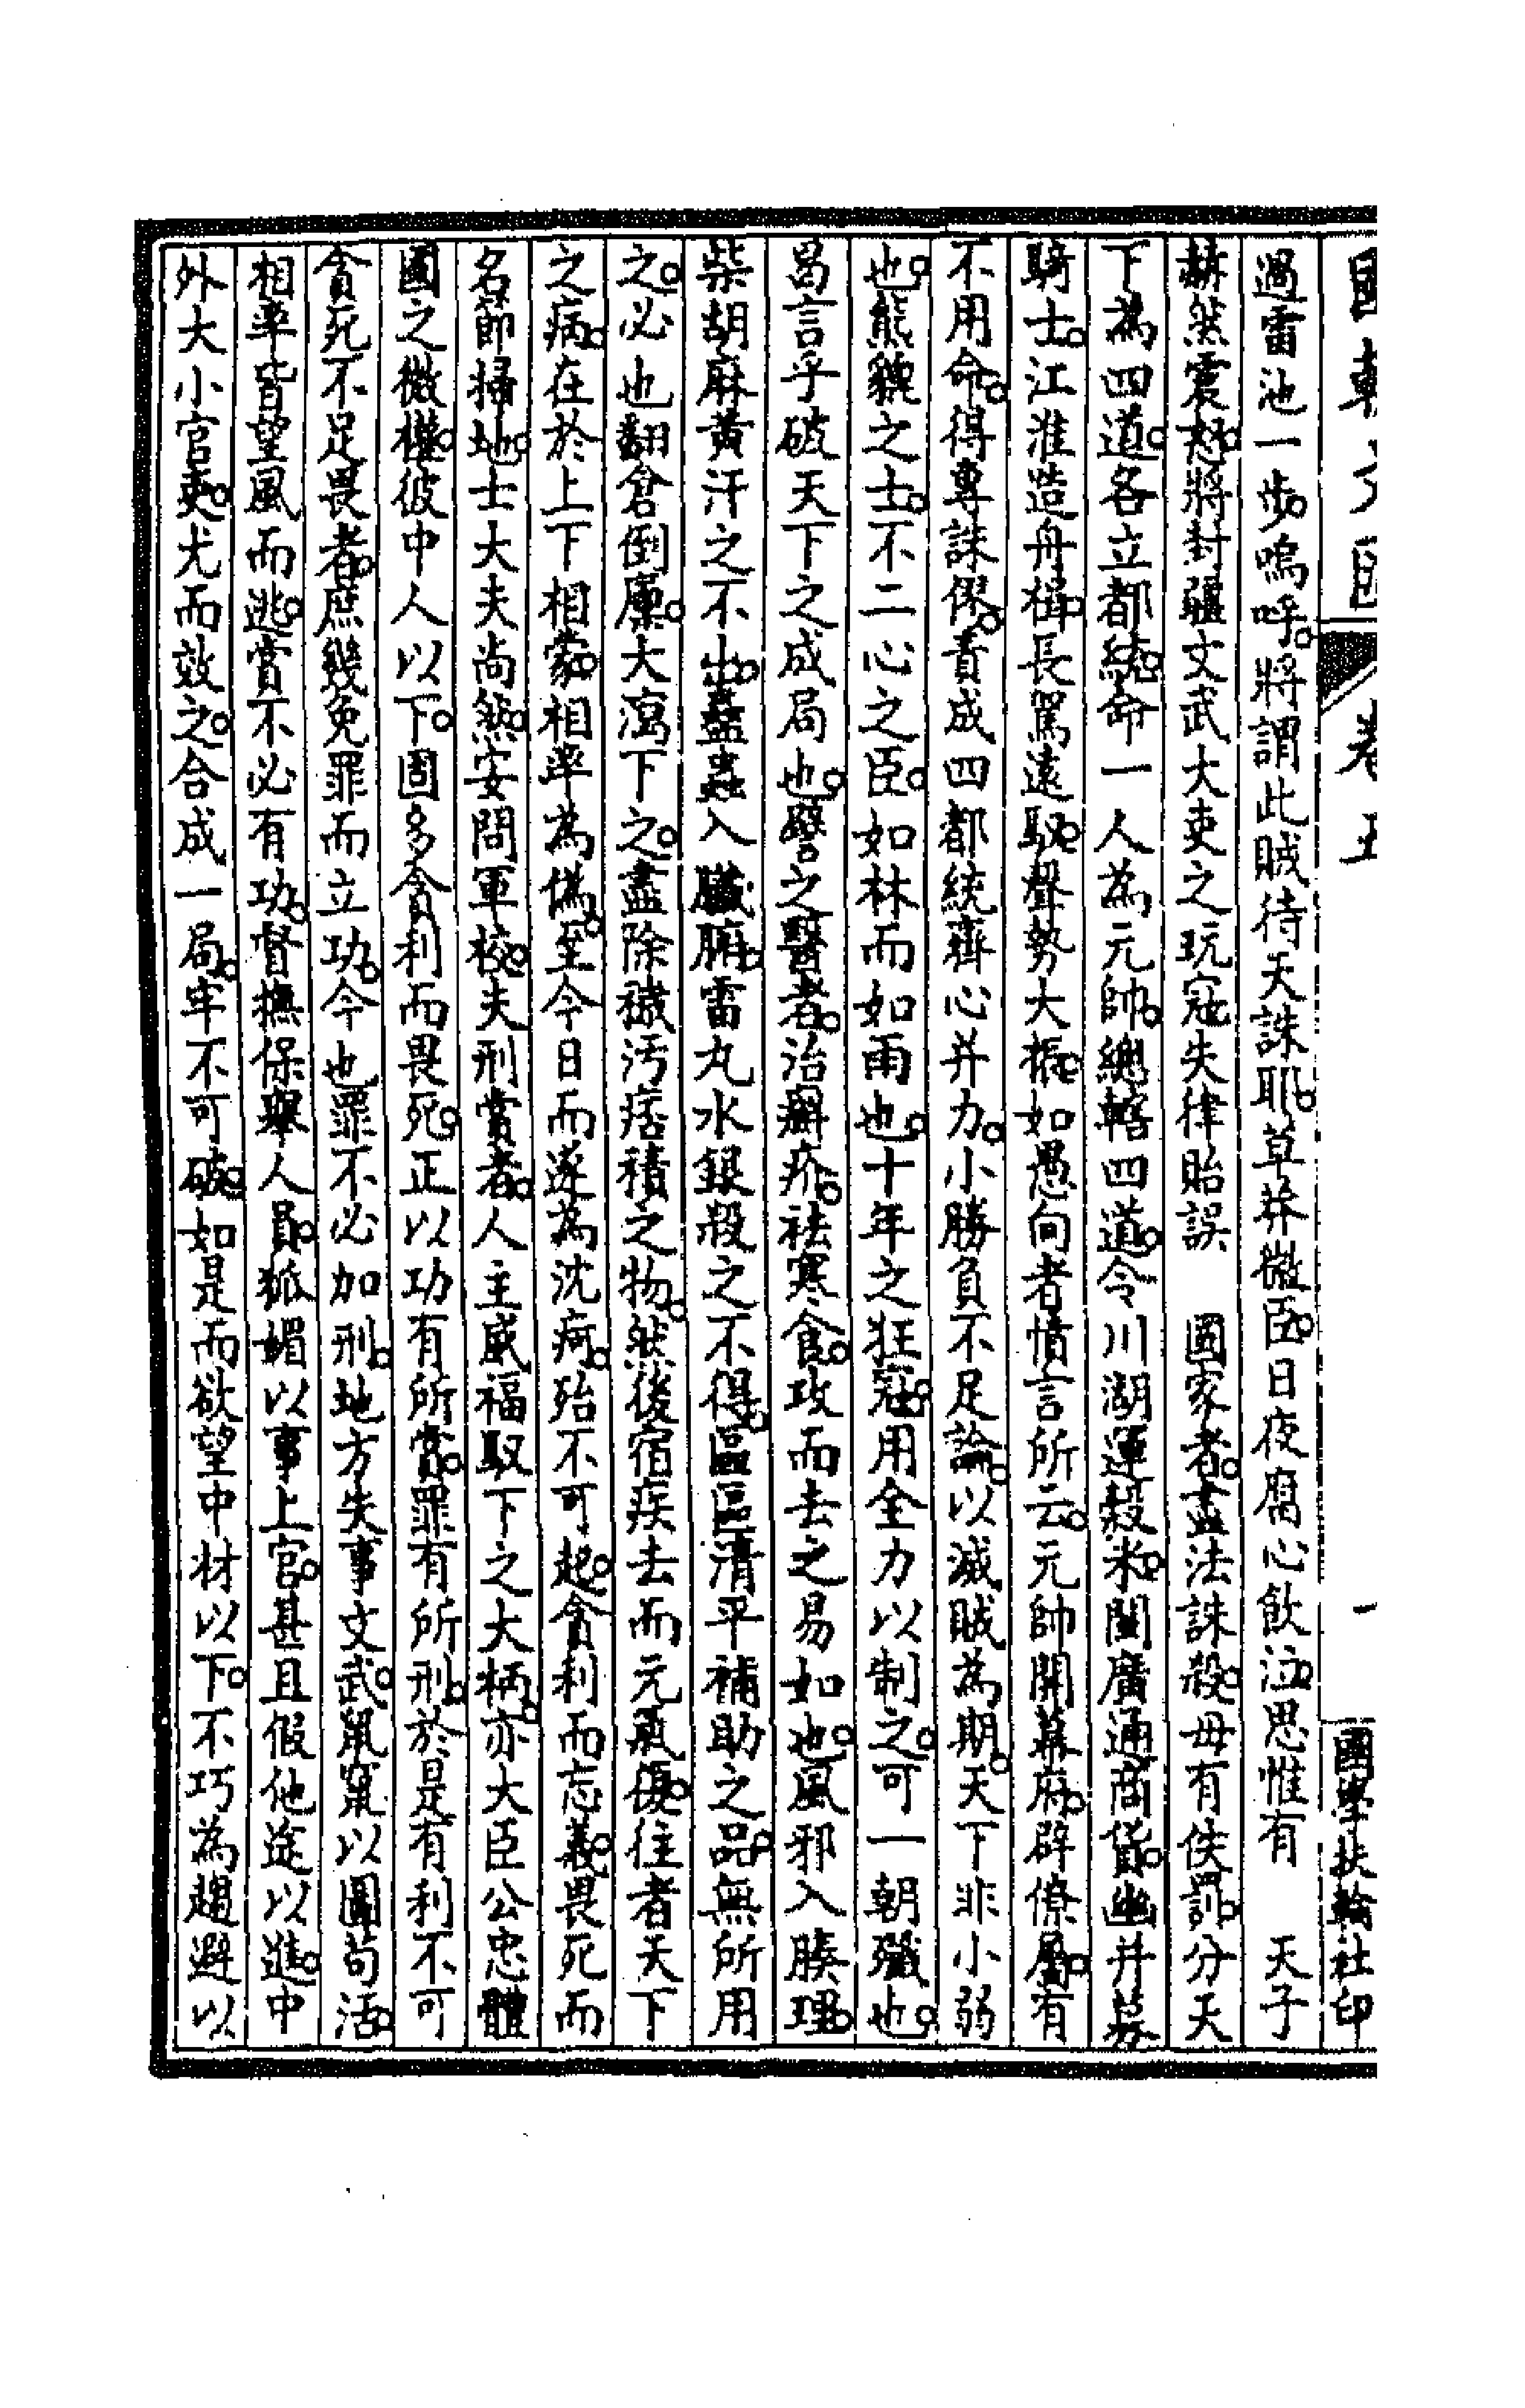 國朝文匯 卷五 一 國學扶輪社印
過雷池一步。嗚呼。將謂此賊待天誅耶。草莽微臣。日夜腐心飲泣。思惟有 天子
赫然震怒。將封疆文武大吏之玩寇失律貽誤 國家者。盡法誅殺。毋有佚罰。分天
下為四道。各立都統。命一人為元帥。總轄四道。令川湖運穀米。閩廣通商貨。幽并募
騎士。江淮造舟楫。長駕遠馭。聲勢大振。如愚向者憤言所云。元帥開幕府。辟僚屬。有
不用命。得專誅僇。責成四都統齊心并力。小勝負不足論。以滅賊為期。天下非小弱
也。熊貔之士。不二心之臣。如林而如雨也。十年之狂寇。用全力以制之。可一朝殲也。
曷言乎破天下之成局也。譬之醫者。治癬疥。祛寒食。攻而去之易如也。風邪入腠理。
柴胡麻黃汗之不出。蠱蟲入臟腑。雷丸水銀殺之不得。區區清平補助之品。無所用
之。必也翻倉倒廩。大瀉下之。盡除穢污痞積之物。然後宿疾去而元氣復。往者天下
之病。在於上下相蒙。相率為偽。至今日而遂為沈疴。殆不可起。貪利而忘義。畏死而
名節掃地。士大夫尚然。安問軍校。夫刑賞者。人主威福馭下之大柄。亦大臣公忠體
國之微權。彼中人以下。固多貪利而畏死。正以功有所賞。罪有所刑。於是有利不可
貪死不足畏者。庶幾免罪而立功。今也罪不必加刑。地方失事文武。鼠竄以圖苟活。
相率皆望風而逃。賞不必有功。督撫保舉人員。狐媚以事上官。甚且假他途以進。中
外大小官吏。尤而效之。合成一局。牢不可破。如是而欲望中材以下。不巧為趨避以